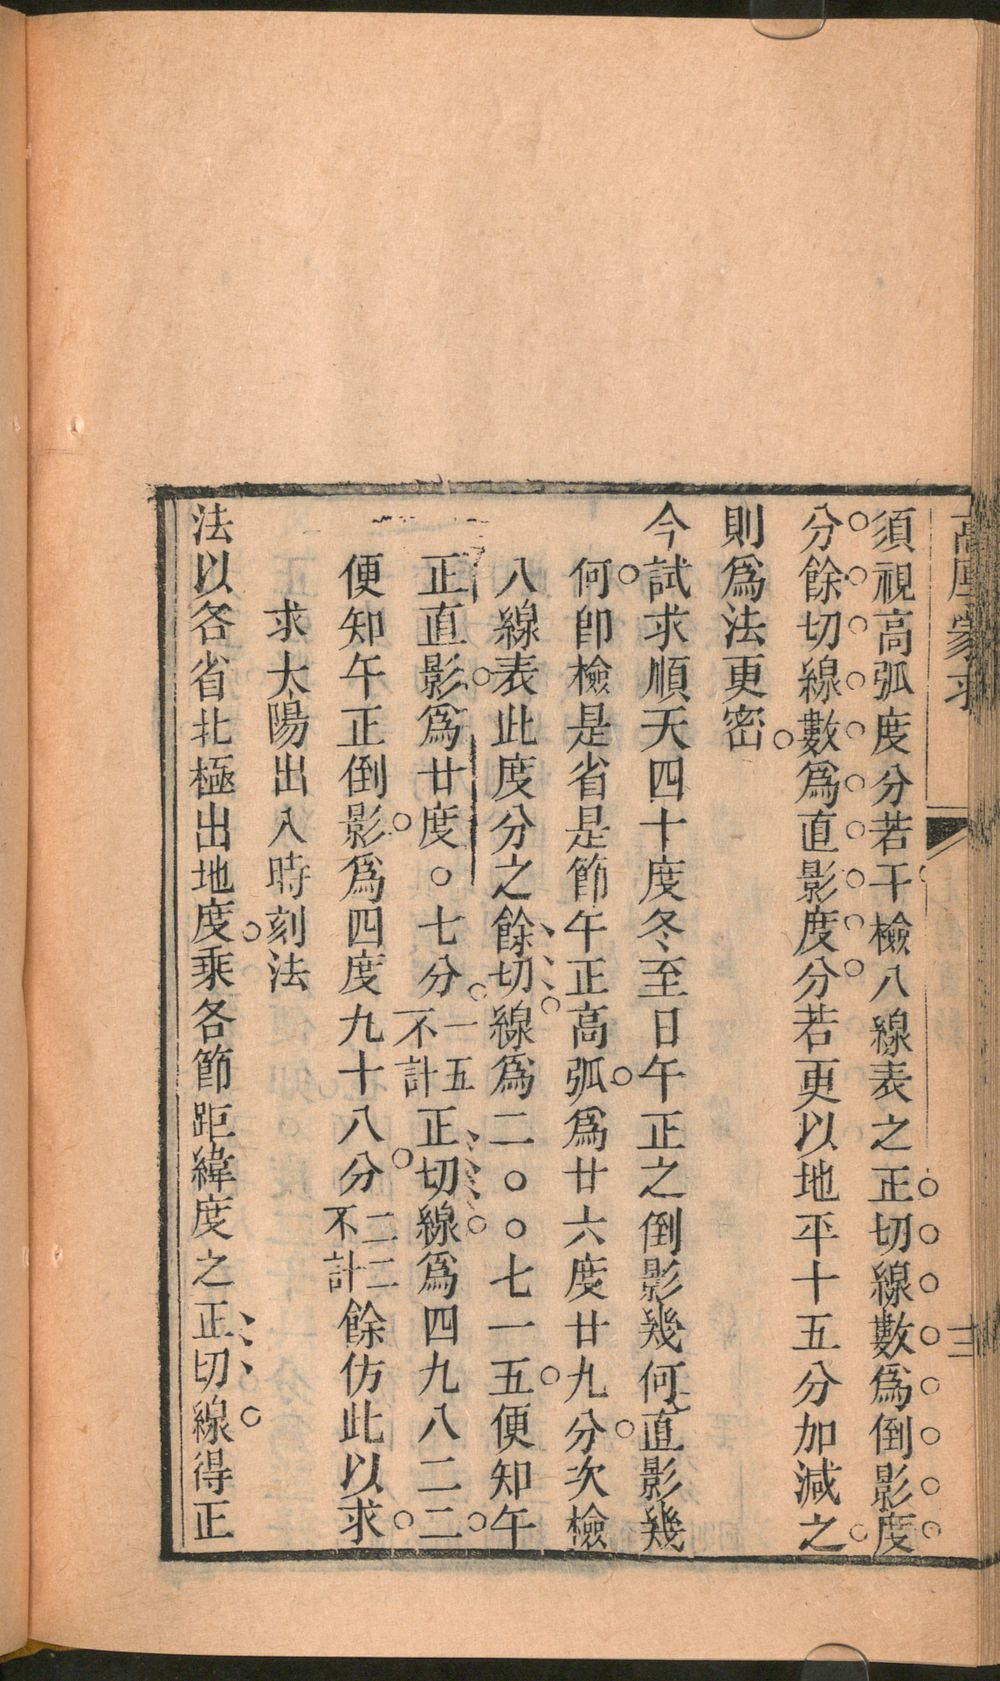 須視高弧度分若干檢八線表之正切線數爲倒影度
分餘切線數爲直影度分若更以地平十五分加減之
則爲法更密
今試求順天四十度冬至日午正之倒影幾何直影幾
何卽檢是省是節午正高弧爲廿六度廿九分次檢
八線表此度分之餘切線爲二〇〇七一五便知午
正直影爲廿度〇七分一五不計正切線爲四九八二二
便知午正倒影爲四度九十八分二二不計餘仿此以求
求太陽出入時刻法
法以各省北極出地度乘各節距緯度之正切線得正